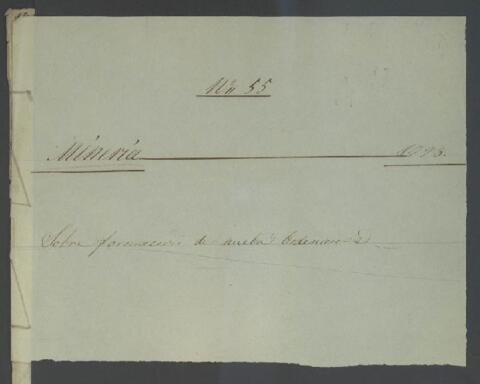 Nº 55
Minería 1793.
Sobre formacion de nueba Ordenanza